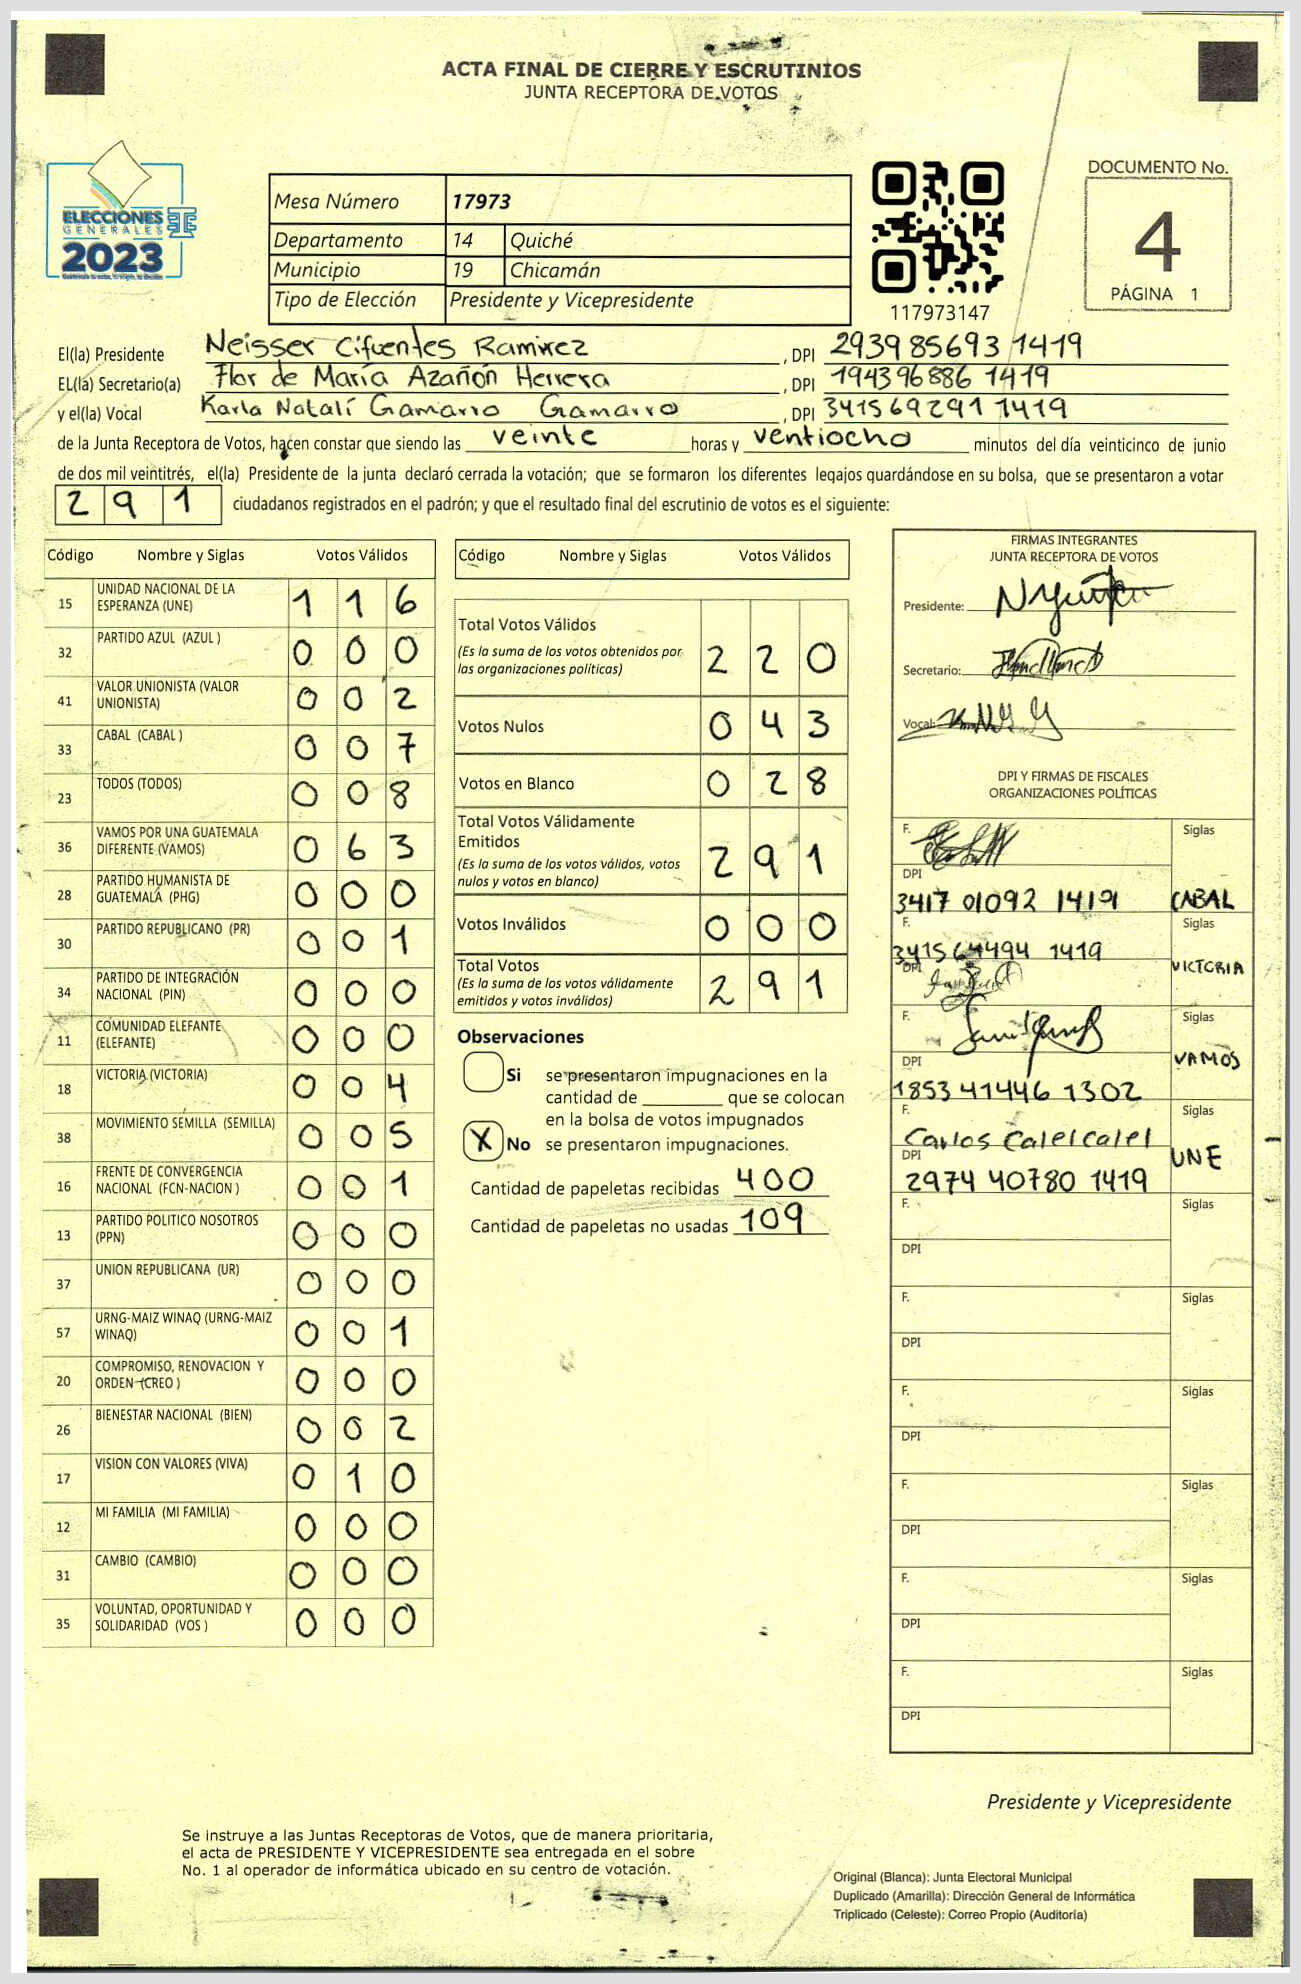 ACTA FINAL DE CIERRE Y ESCRUTINIOS
JUNTA RECEPTORA DE VOTOS
ELECCIONES
GENERALES
2023
Mesa Número 17973
Departamento 14 Quiché
Municipio 19 Chicamán
Tipo de Elección Presidente y Vicepresidente
117973147
DOCUMENTO No.
4
PÁGINA 1
El(la) Presidente Neisser Cifuentes Ramirez, DPI 2939 85693 1419
EL(lá) Secretario(a) Flor de María Azañón Herrera, DPI 1943 96886 1419
y el(la) Vocal Karla Natalí Gamarro Gamarro, DPI 3415 69291 1419
de la Junta Receptora de Votos, hacen constar que siendo las veinte horas y ventiocho minutos del día veinticinco de junio
de dos mil veintitrés, el(la) Presidente de la junta declaró cerrada la votación; que se formaron los diferentes legajos guardándose en su bolsa, que se presentaron a votar
291 ciudadanos registrados en el padrón; y que el resultado final del escrutinio de votos es el siguiente:
Código Nombre y Siglas Votos Válidos
15 UNIDAD NACIONAL DE LA ESPERANZA (UNE) 1 1 6
32 PARTIDO AZUL (AZUL ) 0 0 0
41 VALOR UNIONISTA (VALOR UNIONISTA) 0 0 2
33 CABAL (CABAL ) 0 0 7
23 TODOS (TODOS) 0 0 8
36 VAMOS POR UNA GUATEMALA DIFERENTE (VAMOS) 0 6 3
28 PARTIDO HUMANISTA DE GUATEMALA (PHG) 0 0 0
30 PARTIDO REPUBLICANO (PR) 0 0 1
34 PARTIDO DE INTEGRACIÓN NACIONAL (PIN) 0 0 0
11 COMUNIDAD ELEFANTE (ELEFANTE) 0 0 0
18 VICTORIA (VICTORIA) 0 0 4
38 MOVIMIENTO SEMILLA (SEMILLA) 0 0 5
16 FRENTE DE CONVERGENCIA NACIONAL (FCN-NACION ) 0 0 1
13 PARTIDO POLITICO NOSOTROS (PPN) 0 0 0
37 UNION REPUBLICANA (UR) 0 0 0
57 URNG-MAIZ WINAQ (URNG-MAIZ WINAQ) 0 0 1
20 COMPROMISO, RENOVACION Y ORDEN (CREO ) 0 0 0
26 BIENESTAR NACIONAL (BIEN) 0 0 2
17 VISION CON VALORES (VIVA) 0 1 0
12 MI FAMILIA (MI FAMILIA) 0 0 0
31 CAMBIO (CAMBIO) 0 0 0
35 VOLUNTAD, OPORTUNIDAD Y SOLIDARIDAD (VOS ) 0 0 0
Código Nombre y Siglas Votos Válidos
Total Votos Válidos
(Es la suma de los votos obtenidos por las organizaciones políticas) 2 2 0
Votos Nulos 0 4 3
Votos en Blanco 0 2 8
Total Votos Válidamente Emitidos
(Es la suma de los votos válidos, votos nulos y votos en blanco) 2 9 1
Votos Inválidos 0 0 0
Total Votos
(Es la suma de los votos válidamente emitidos y votos inválidos) 2 9 1
Observaciones
Si se presentaron impugnaciones en la
cantidad de ________ que se colocan
en la bolsa de votos impugnados
X No se presentaron impugnaciones.
Cantidad de papeletas recibidas 400
Cantidad de papeletas no usadas 109
FIRMAS INTEGRANTES
JUNTA RECEPTORA DE VOTOS
Presidente:
Secretario:
Vocal:
DPI Y FIRMAS DE FISCALES
ORGANIZACIONES POLÍTICAS
F. Siglas
DPI
3417 01092 1419 CABAL
F. Siglas
3415 64494 1419
DPI VICTORIA
F. Siglas
DPI VAMOS
1853 41446 1302
F. Siglas
Carlos Calel calel
DPI UNE
2974 40780 1419
F. Siglas
DPI
F. Siglas
DPI
F. Siglas
DPI
F. Siglas
DPI
F. Siglas
DPI
F. Siglas
DPI
Presidente y Vicepresidente
Se instruye a las Juntas Receptoras de Votos, que de manera prioritaria,
el acta de PRESIDENTE Y VICEPRESIDENTE sea entregada en el sobre
No. 1 al operador de informática ubicado en su centro de votación.
Original (Blanca): Junta Electoral Municipal
Duplicado (Amarilla): Dirección General de Informática
Triplicado (Celeste): Correo Propio (Auditoría)